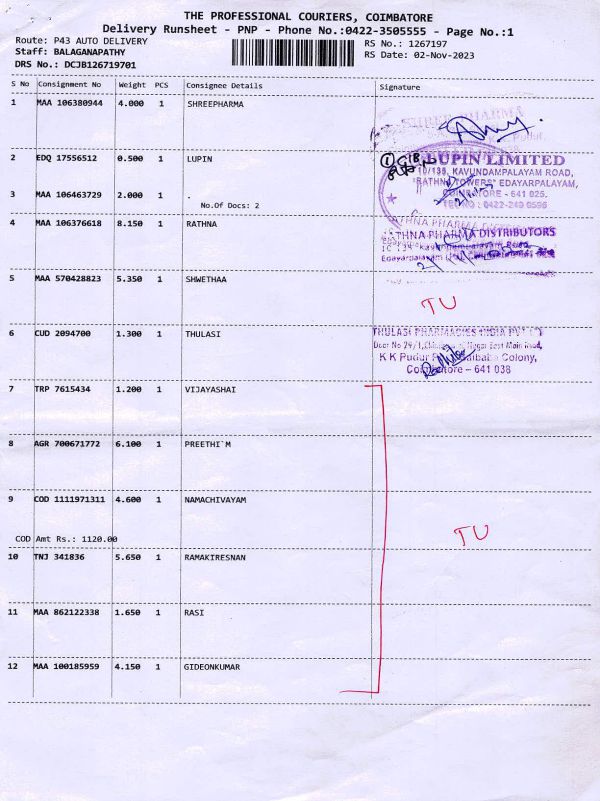 THE PROFESSIONAL COURIERS, COIMBATORE
Delivery Runsheet - PNP - Phone No.:0422-3505555 - Page No.:1
Route: P43 AUTO DELIVERY
RS No.: 1267197
Staff: BALAGANAPATHY
RS Date: 02-Nov-2023
DRS No.: DCJB126719701
S No Consignment No Weight PCS Consignee Details Signature
1 MAA 106380944 4.000 1 SHREEPHARMA
SHREE PHARMA
2 EDQ 17556512 0.500 1 LUPIN
LUPIN LIMITED
10/136, KAVUNDAMPALAYAM ROAD,
"RATHNA TOWERS" EDAYARPALAYAM,
COIMBATORE - 641 025.
3 MAA 106463729 2.000 1 .
No.Of Docs: 2
4 MAA 106376618 8.150 1 RATHNA
RATHNA PHARMA DISTRIBUTORS
5 MAA 570428823 5.350 1 SHWETHAA
TU
6 CUD 2094700 1.300 1 THULASI
THULASI PHARMACIES INDIA PVT
Door No 29/1, Nagar East Main Road,
K K Pudur Saibaba Colony,
Coimbatore - 641 038
7 TRP 7615434 1.200 1 VIJAYASHAI
8 AGR 700671772 6.100 1 PREETHI`M
9 COD 1111971311 4.600 1 NAMACHIVAYAM
COD Amt Rs.: 1120.00
TU
10 TNJ 341836 5.650 1 RAMAKIRESNAN
11 MAA 862122338 1.650 1 RASI
12 MAA 100185959 4.150 1 GIDEONKUMAR